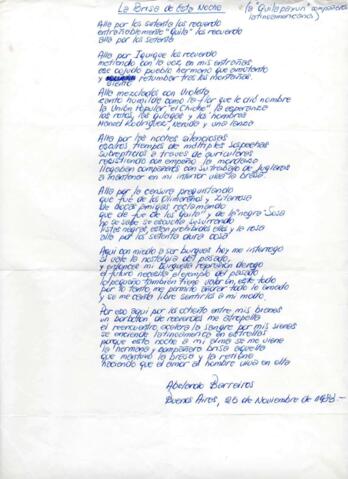 La Brisa de Esta Noche
(a "Quilapayun" compañeros latinoamericanos)
Alla por los setenta los recuerdo
entrañablemente "Quila" los recuerdo
alla por los setenta
Alla por Iquique los recuerdo
metiendo con la voz en mis entrañas
ese pueblo hermano que
retumbar tras las montañas
Alla mezclados con Violeta
canto humilde como la flor que le dió nombre
la Union Popular, "el Chicho" la esperanza
los rotos, los guasos y los hombres
Manuel Rodriguez, venido y una lanza
Alla por las noches silenciosas
oscuros tiempos de multiples sospechas
subrepticios a traves de auriculares
resistiendo con empeño la mordaza
llegaban compañeros con su trabajo de juglares
a mantener en mi interior viva la brasa.
Alla por la censura preguntando
que fué de los Olimareños, y Zitarrosa
de bocas amigas reclamando
que de fue de los "Quila" y de la negra Sosa
no se sabe se escucha susurrando
Estos negros, estan prohibidos ella y la rosa
alla por los setenta dura cosa
Aqui con miedo a ser burgues hoy me interrogo
si vale la nostalgia del pasado,
el futuro necesita el ejemplo del pasado
lo pequeño tambien tiene valor en este todo
por lo tanto me permito añorar todo lo amado
y se me canto libre sentirlo a mi modo.
Por eso aqui por los ochenta entre mis bienes
un borboton de recuerdos me atropella
el reencuentro acelera la sangre por mis sienes
se enciende latinoamerica en estrellas
porque esta noche a mi alma se me viene
la hermana y compañera brisa aquella
que mantuvo la brasa y la retiene
haciendo que el amor al hombre viva en ella
Abelardo Barreiros
Buenos Aires, 25 de Noviembre de 1988.-